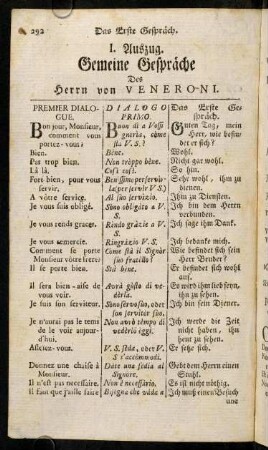 292 Das Erste Gespräch.
I. Auszug.
Gemeine Gespräche
Des
Herrn von VENERONI.
PREMIER DIALO-
GUE.
Bon jour, Monsieur,
comment vous
portez-vous?
Bien.
Pas trop bien.
Là là.
Fort bien, pour vous
servir.
A vôtre service.
Je vous suis obligé.
Je vous rends graces.
Je vous remercie.
Comment se porte
Monsieur vôtre frere?
Il se porte bien.
Il sera bien-aise de
vous voir.
Je suis son serviteur.
Je n'aurai pas le tems
de le voir aujour-
d'hui.
Asseiez-vous.
Donnez une chaise à
Monsieur.
Il n'est pas necessaire.
Il faut que j'aille faire
DIALOGO
PRIMO.
Buon dì a Vossi-
gnoria, come
stà V. S.?
Bène.
Non tròppo bène.
Così così.
Benissimo per servir-
la (per servir V. S.)
Al suo servizio.
Sono obligàto a V.
S.
Rendo gràzie a V.
S.
Ringràzio V. S.
Come stà il Signòr
suo fratèllo?
Stà bène.
Avrà gùsto di ve-
dèrla.
Sono servo suo, over
son servitòr suo.
Non avrò tèmpo di
vedèrlo òggi.
V. S. sèda, over V.
S. s'accòmmodi.
Date una sèdia al
Signòre.
Non è necessàrio.
Bisògna che vàda a
Das Erste Ge-
spräch.
Guten Tag, mein
Herr, wie befin-
det er sich?
Wohl.
Nicht gar wohl.
So hin.
Sehr wohl, ihm zu
dienen.
Ihm zu Diensten.
Ich bin dem Herrn
verbunden.
Ich sage ihm Dank.
Ich bedancke mich.
Wie befindet sich sein
Herr Bruder?
Er befindet sich wohl
auf.
Es wird ihm lieb seyn,
ihn zu sehen.
Ich bin sein Diener.
Ich werde die Zeit
nicht haben, ihn
heut zu sehen.
Er setze sich.
Gebt dem Herrn einen
Stuhl.
Es ist nicht nöthig.
Ich muß einen Besuch
une